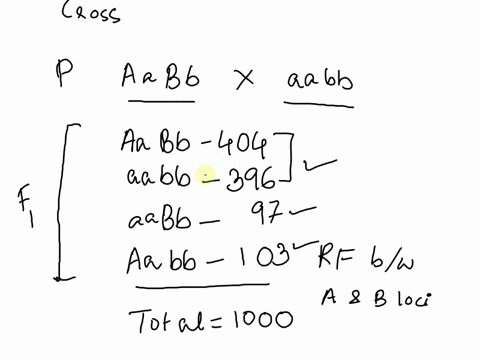 Cross
P AaBb X aabb
AaBb - 404
aabb - 396
F1
aaBb - 97
Aabb - 103 RF b/w
A & B loci
Total = 1000